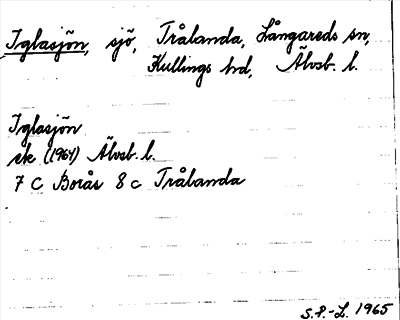 Iglasjön, sjö, Trålanda, Långareds sn,
Kullings hd, Älvsb. l.
Iglasjön
ek (1964) Älvsb. l.
7 C Borås 8 c Trålanda
S.P.-L. 1965